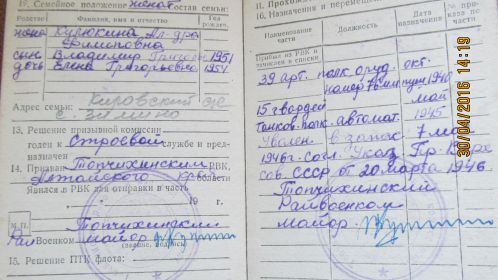 12. Семейное положение женат
Состав семьи:
Родство
Фамилия, имя и отчество
Год рожден.
жена Кулюкина Ал-дра
Филиповна
сын Владимир 1951
дочь Елена Григорьевна 1954
Адрес семьи: Кировский с/с
с. Зимино
13. Решение призывной комиссии
годен к строевой службе и пред-
назначен
14. Призван Топчихинским РВК,
Алтайского края области
Явился в РВК для отправки в часть
19 г.
М. П.
Топчихинский
Райвоенком майор
(звание, подпись)
15. Решение ПТК флота:
16. Назначения и перемещения
Наименование части
Должность
Дата назначения
№ приказа по части
Прибыл из РВК и зачислен в списки
39 арт. полк оруд. окт.
номер 76 мм пуш 1940
15 гвардей май
танков. полк автомат. 1945
Уволен в запас 7 мая
1946г. согл. Указ. Пр. Верх
Сов. СССР от 20 марта 1946.
Топчихинский
Райвоенком
майор
30/04/2016 14:19